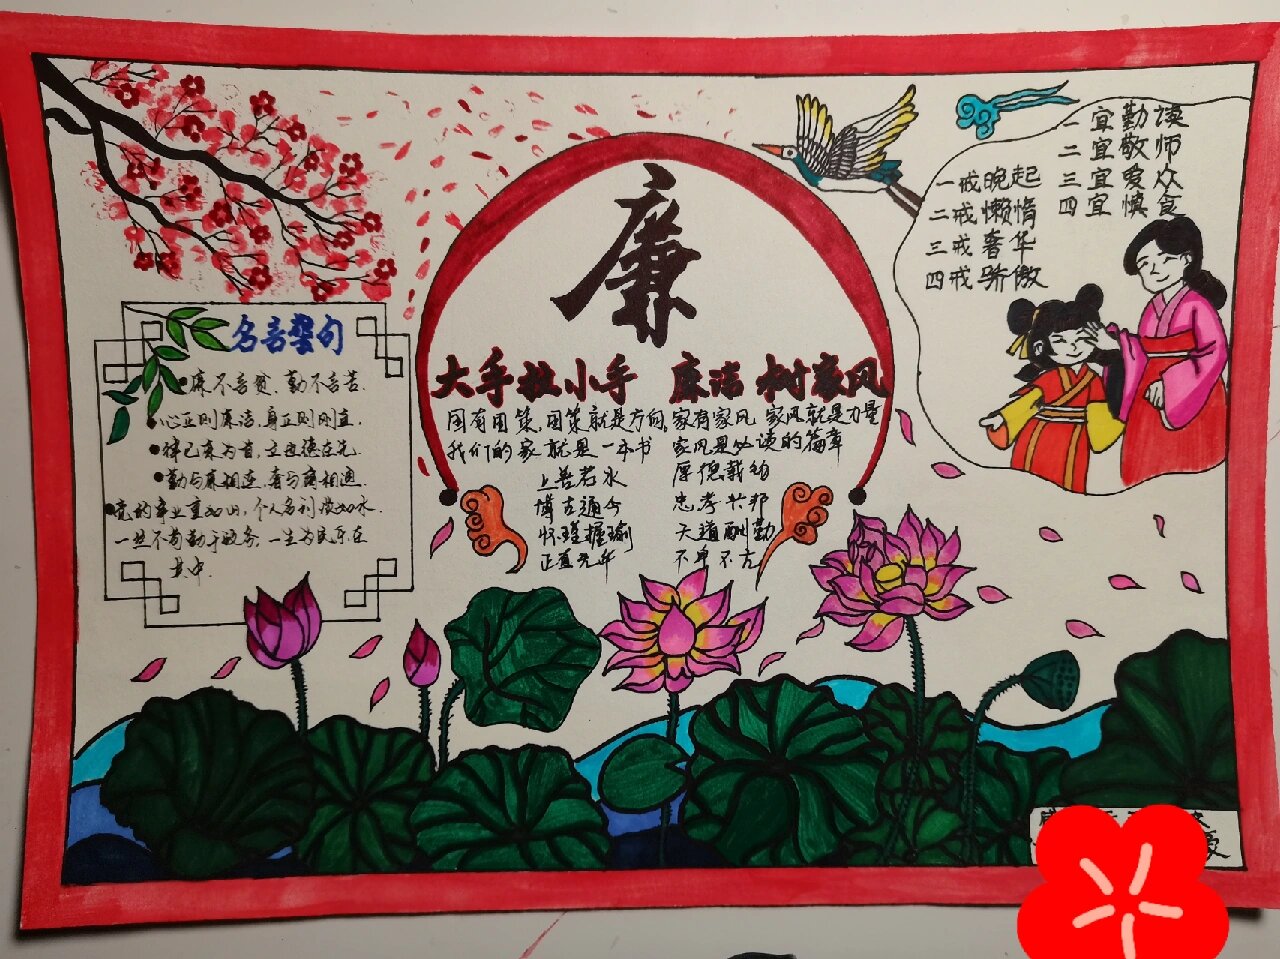 廉
大手拉小手 廉洁树家风
国有国策,国策就是方向,家有家风 家风就是力量
我们的家就是一本书 家风是必读的篇章
上善若水 厚德载物
博古通今 忠孝兴邦
怀瑾握瑜 天道酬勤
正直无邪 不卑不亢
名言警句
廉不言贫,勤不言苦.
心正则廉洁,身正则刚直.
律己来为首,立业德在先
勤与廉相连,奢与腐相通.
党的事业重如山,个人名利淡如水.
一丝不苟勤于政务,一生为民乐在
其中.
一宜勤读
二宜敬师
三宜爱众
四宜慎食
一戒晚起
二戒懒惰
三戒奢华
四戒骄傲